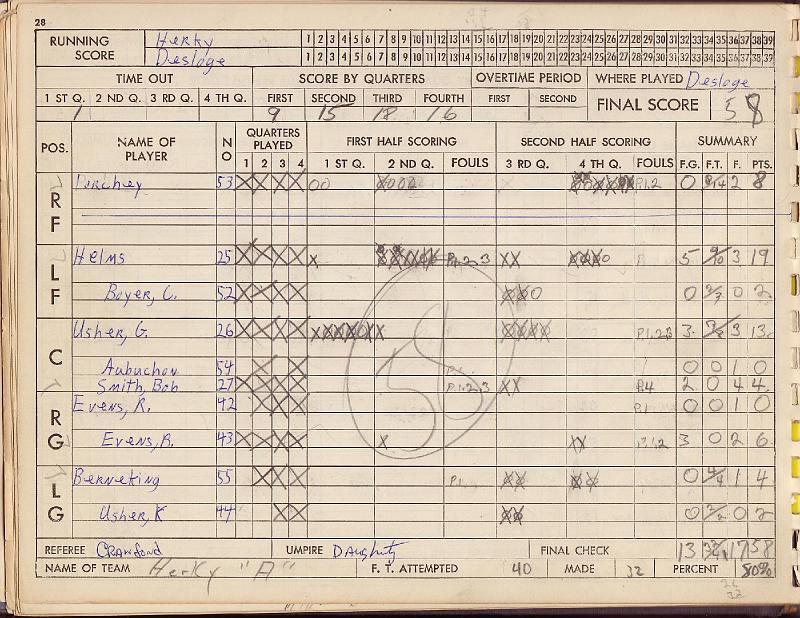 28
RUNNING SCORE Herky 1 2 3 4 5 6 7 8 9 10 11 12 13 14 15 16 17 18 19 20 21 22 23 24 25 26 27 28 29 30 31 32 33 34 35 36 37 38 39
Desloge 1 2 3 4 5 6 7 8 9 10 11 12 13 14 15 16 17 18 19 20 21 22 23 24 25 26 27 28 29 30 31 32 33 34 35 36 37 38 39
TIME OUT SCORE BY QUARTERS OVERTIME PERIOD WHERE PLAYED Desloge
1 ST Q. 2 ND Q. 3 RD Q. 4 TH Q. FIRST SECOND THIRD FOURTH FIRST SECOND FINAL SCORE 58
1 9 15 18 16
POS. NAME OF PLAYER NO QUARTERS PLAYED FIRST HALF SCORING SECOND HALF SCORING SUMMARY
1 2 3 4 1 ST Q. 2 ND Q. FOULS 3 RD Q. 4 TH Q. FOULS F.G. F.T. F. PTS.
RF 53 X X X X 00 P.1.2 0 8/14 2 8
LF Helms 25 X X X X X P.1.2.3 XX 5 9/10 3 19
Boyer, C. 52 X X X X 0 2/7 0 2
C Usher, G. 26 X X X X P.1.2.3 3 3 13
Aubuchon 54 X X 0 0 1 0
Smith, Bob 27 X X X X P.1.2.3 XX P.4 2 0 4 4
RG Evens, R. 42 X X X P.1 0 0 1 0
Evens, R. 43 X X X X X XX P.1.2 3 0 2 6
LG Berneking 55 X X X P.1 XX 0 4/4 1 4
Usher, K 44 X X XX 0 2/2 0 2
REFEREE Crawford UMPIRE Daugherty FINAL CHECK 13 32/41 17 58
NAME OF TEAM Herky "A" F. T. ATTEMPTED 40 MADE 32 PERCENT 80%